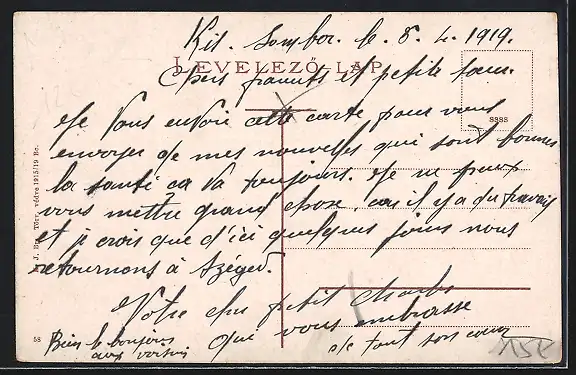 Kis. Sombor. le. 8. 4. 1919.
LEVELEZŐ-LAP.
Chers parents et petite sœur.
Je Vous envoie cette carte pour vous
envoyer de mes nouvelles qui sont bonnes
la santé ca va toujours. Je ne peux
vous mettre grand chose, cas il y a du travail
et je crois que d'ici quelques jours nous
retournons à Széged.
Votre petit Charles
que vous embrasse
de tout son cœur
Bien le bonjours
aux voisins
ssss
58
1915/19